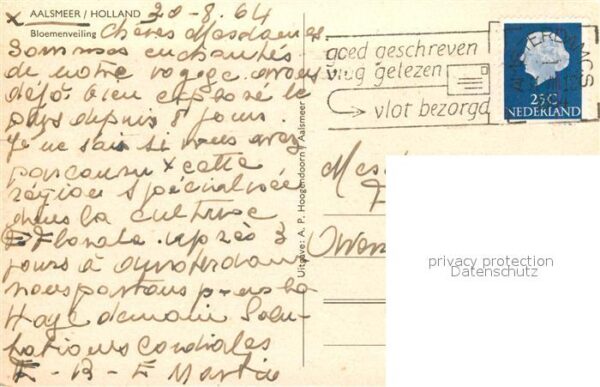 x AALSMEER / HOLLAND 20-8.64
Bloemenveiling Chères Mesdames
Sommes enchantés
de notre voyage. avons
déjà bien exploré le
pays depuis 8 jours.
Je ne sais si vous avez
parcouru x cette
région spécialisée
dans la culture
Florale. après 3
jours à Amsterdam
nous partons pour La
Haye demain Salu-
tations cordiales
F - B - F Martin
Uitgave: A. P. Hoogendoorn / Aalsmeer
goed geschreven
vlug gelezen
vlot bezorgd
AMSTERDAM CS
25 C
NEDERLAND
Mes
privacy protection
Datenschutz